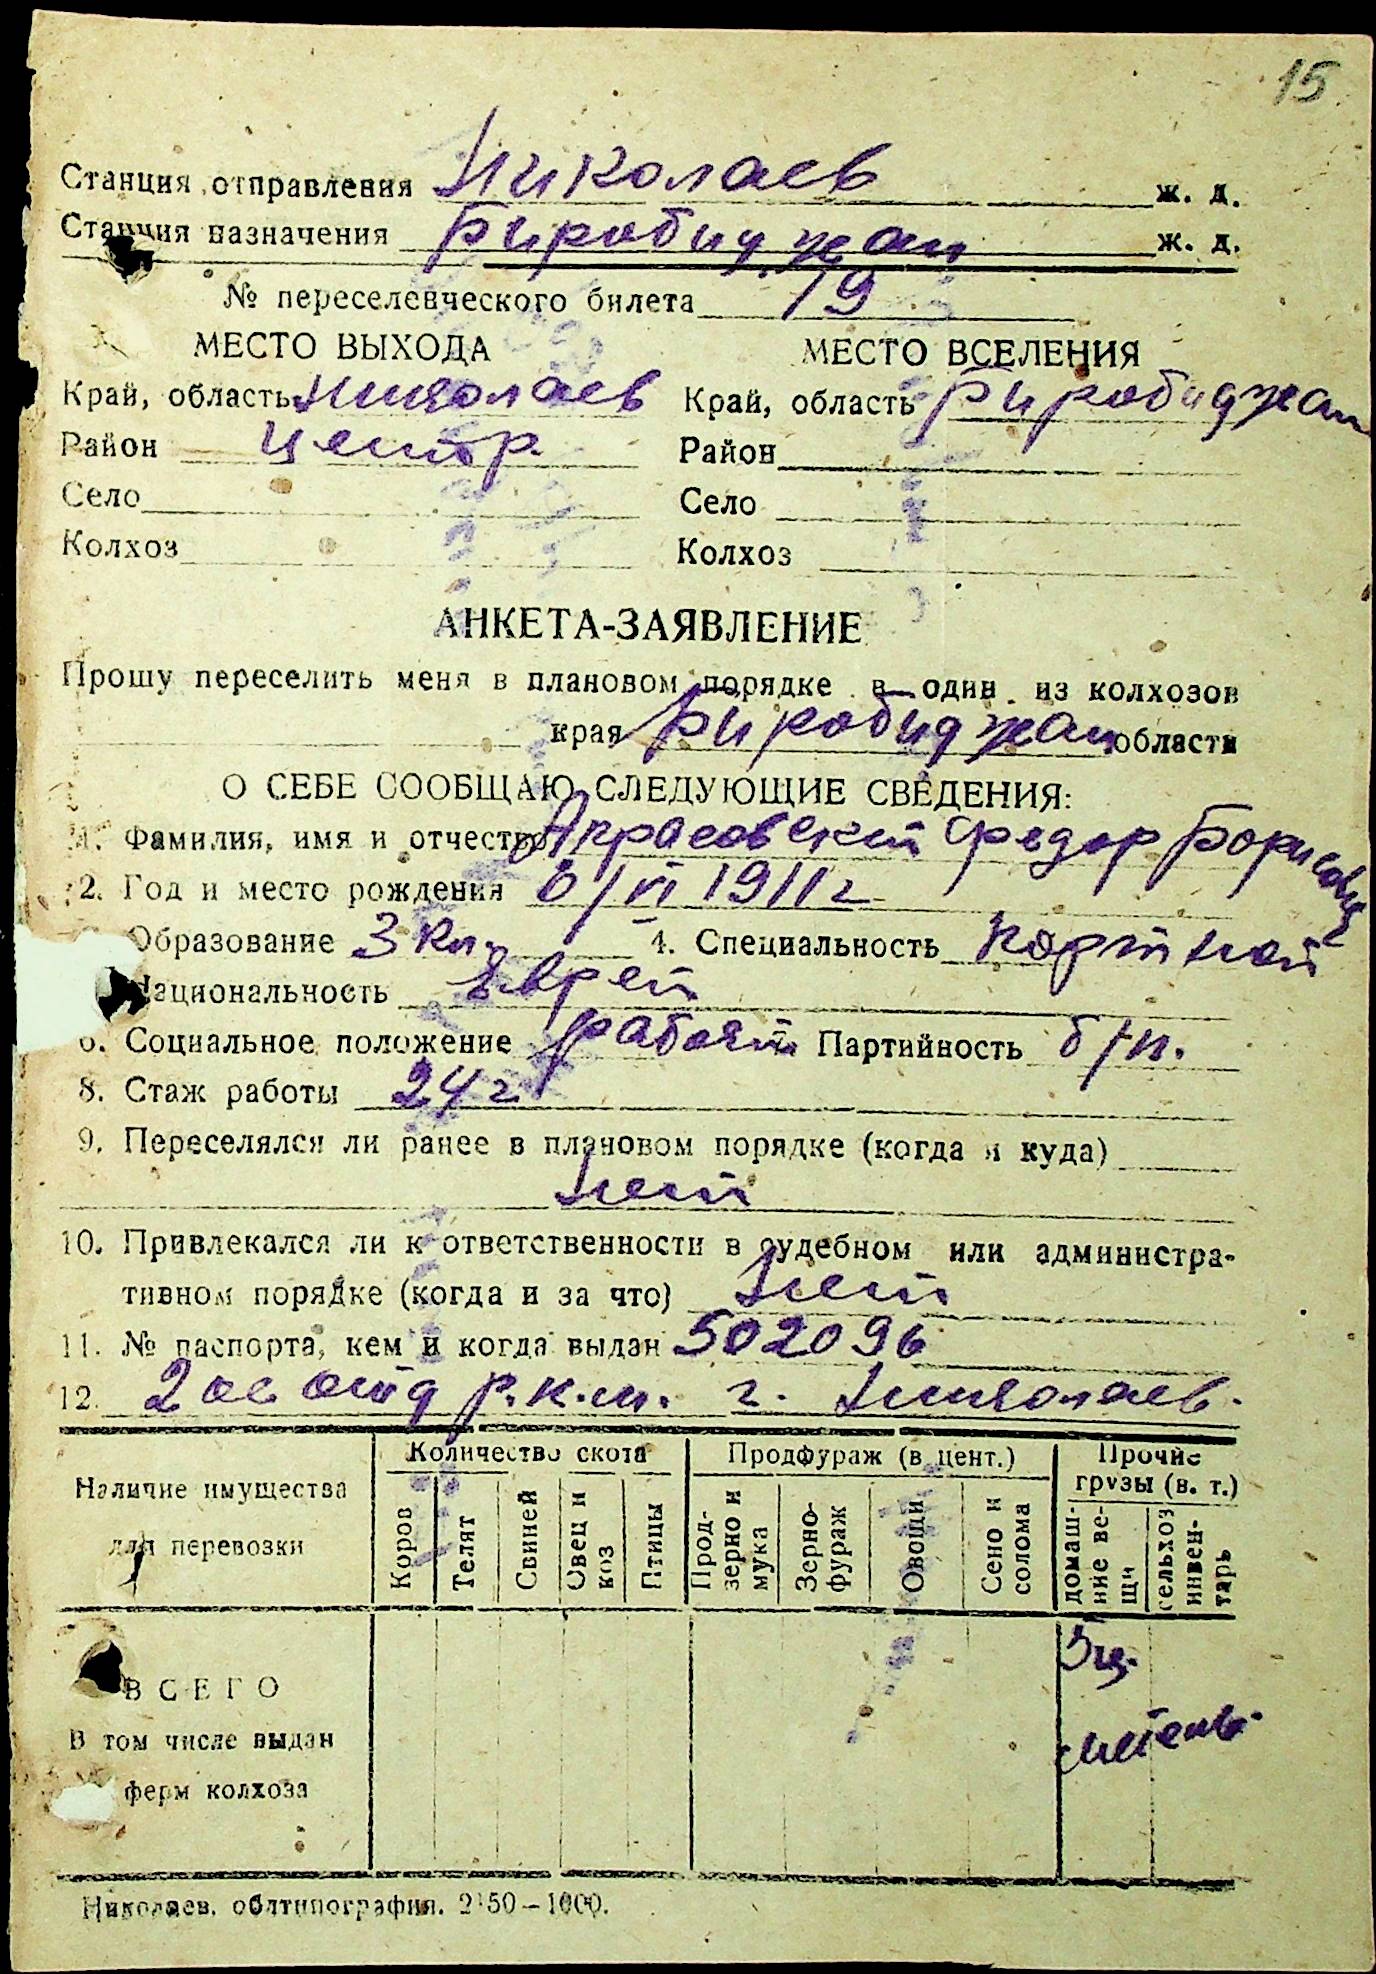 15
Станция отправления Николаев ж. д.
Станция назначения Биробиджан ж. д.
№ переселенческого билета 19
МЕСТО ВЫХОДА МЕСТО ВСЕЛЕНИЯ
Край, область Николаев Край, область Биробиджан
Район Центр. Район
Село Село
Колхоз Колхоз
АНКЕТА-ЗАЯВЛЕНИЕ
Прошу переселить меня в плановом порядке в один из колхозов
края Биробиджан области
О СЕБЕ СООБЩАЮ СЛЕДУЮЩИЕ СВЕДЕНИЯ:
1. Фамилия, имя и отчество Федор Борисович
2. Год и место рождения 6/VI 1911 г
Образование 3 кл. 4. Специальность Портной
Национальность Еврей
6. Социальное положение Партийность б/п.
8. Стаж работы 24 г
9. Переселялся ли ранее в плановом порядке (когда и куда)
нет
10. Привлекался ли к ответственности в судебном или администра-
тивном порядке (когда и за что) нет
11. № паспорта, кем и когда выдан 502096
12. 2 ое отд р.к.м. г. Николаев.
Наличие имущества для перевозки
Количество скота Продфураж (в цент.) Прочие грузы (в. т.)
Коров Телят Свиней Овец и коз Птицы Прод-зерно и мука Зерно-фураж Овощи Сено и солома домаш-ние ве-щи сельхоз инвен-тарь
ВСЕГО 5 ц.
В том числе выдан
ферм колхоза
Николаев. облтипография. 2150–1000.